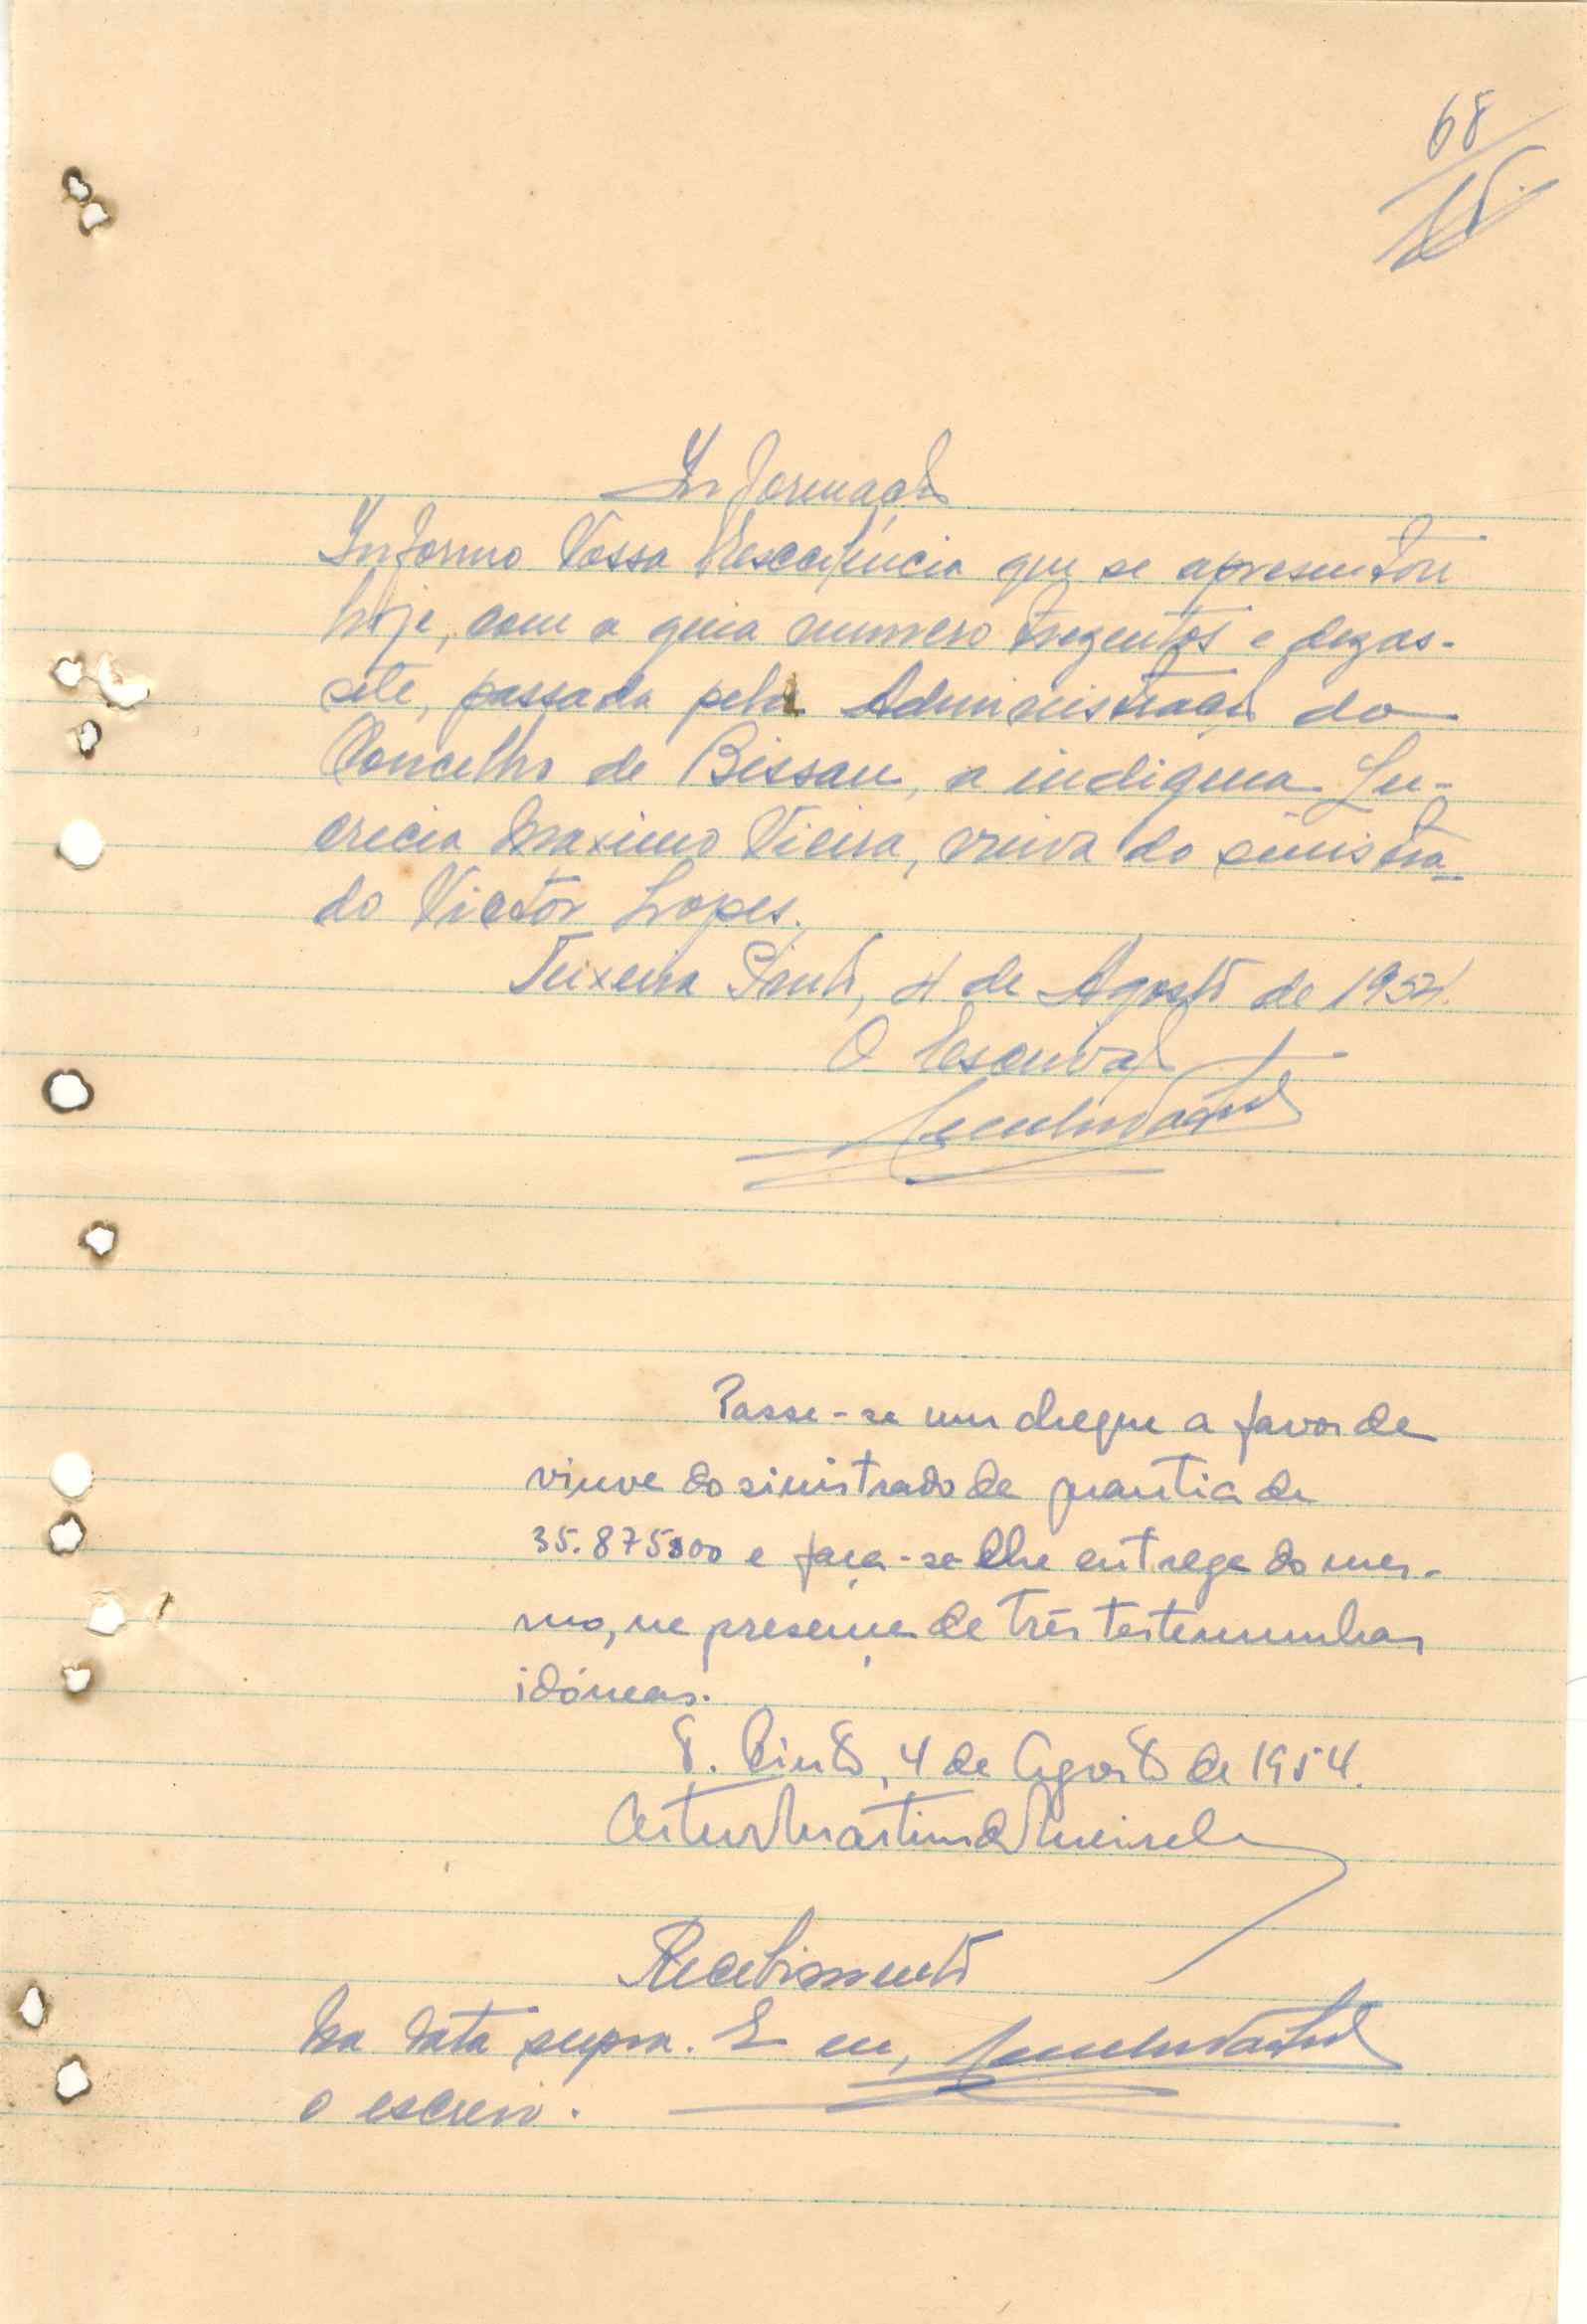 68
Informação
Informo Vossa Excelência que se apresentou
hoje, com a guia numero trezentos e dezas-
sete, passada pela Administração do
Concelho de Bissau, a indigena Lu-
crecia Maximo Vieira, viuva do sinistra-
do Victor Lopes.
Teixeira Pinto, 4 de Agosto de 1954.
O Escrivão
Passe-se um cheque a favor da
viuva do sinistrado da quantia de
35.875$00 e faça-se-lhe entrega do mes-
mo, na presença de três testemunhas
idóneas.
T. Pinto, 4 de Agosto de 1954.
Artur Martins de Meireles
Recebimento
Na data supra. E eu,
o escrevi.